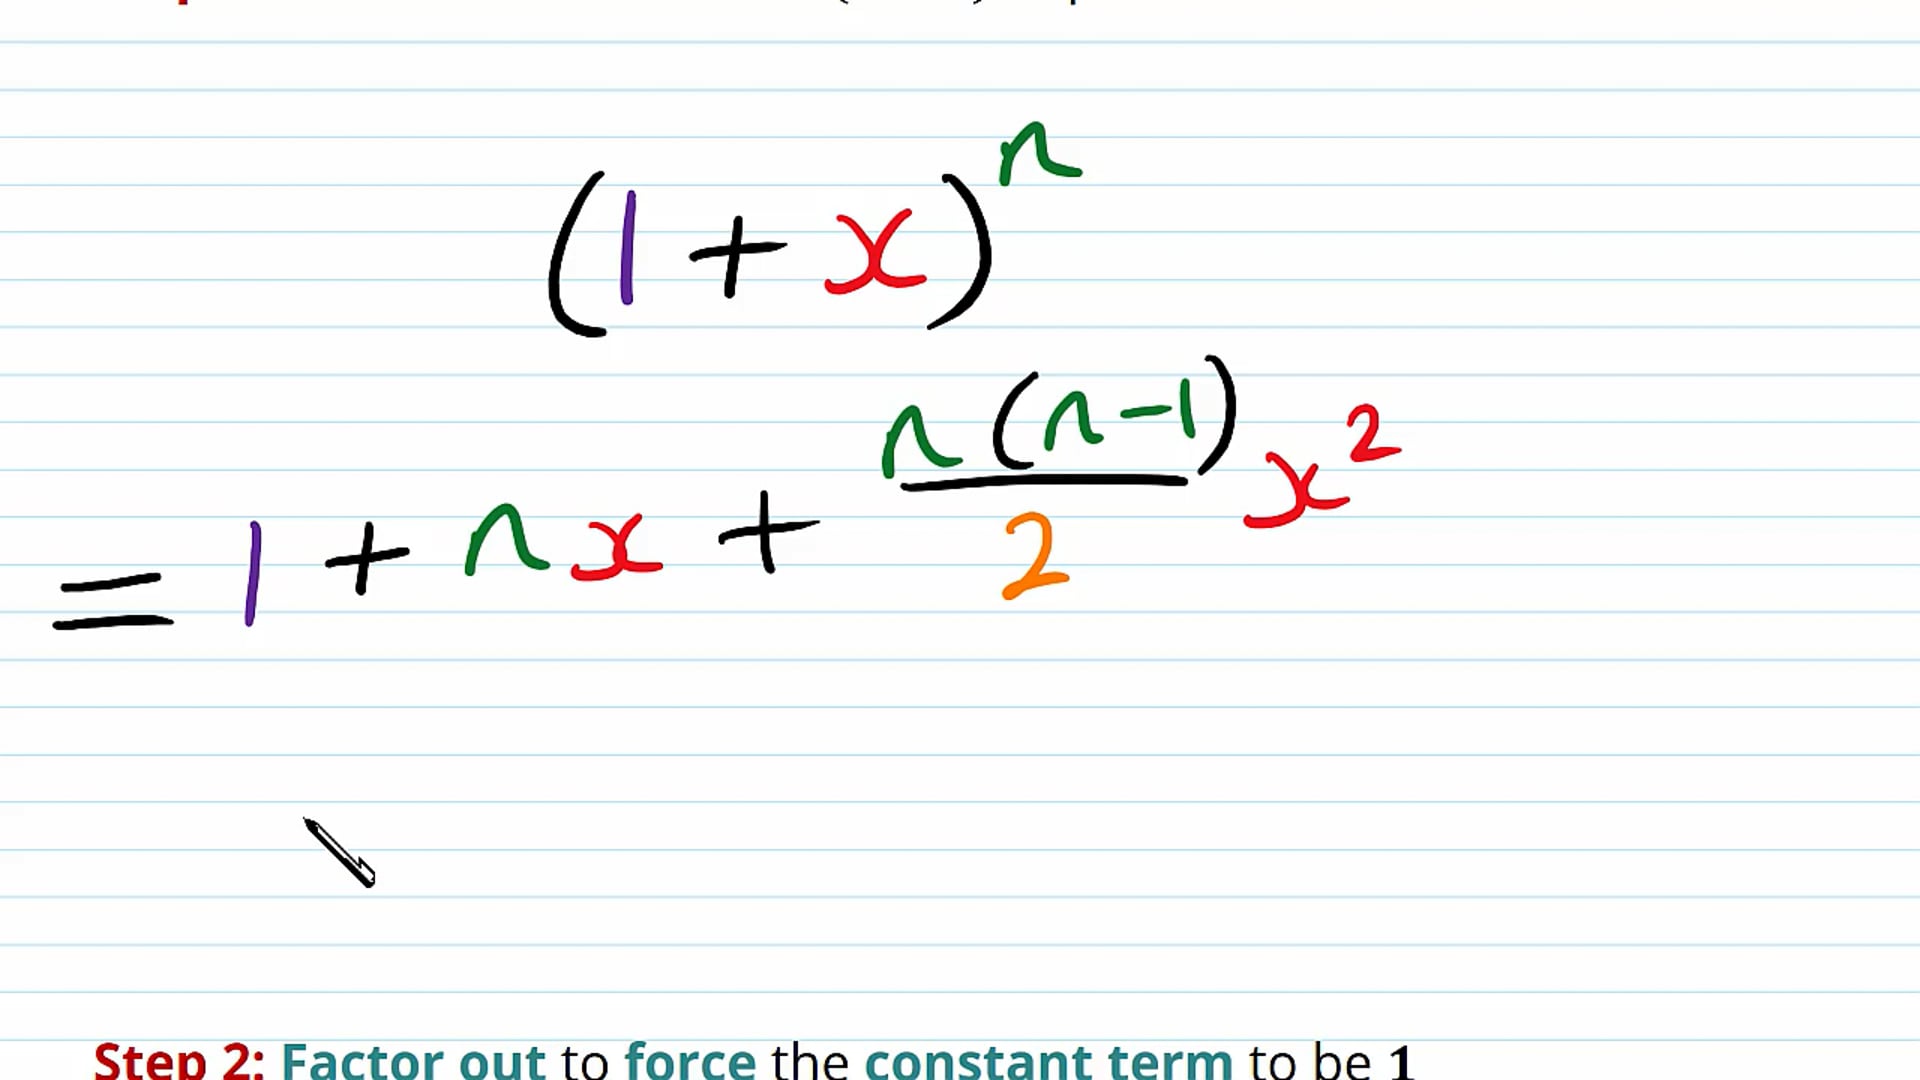 (1 + x)^n
= 1 + nx + n(n-1)/2 x^2
Step 2: Factor out to force the constant term to be 1